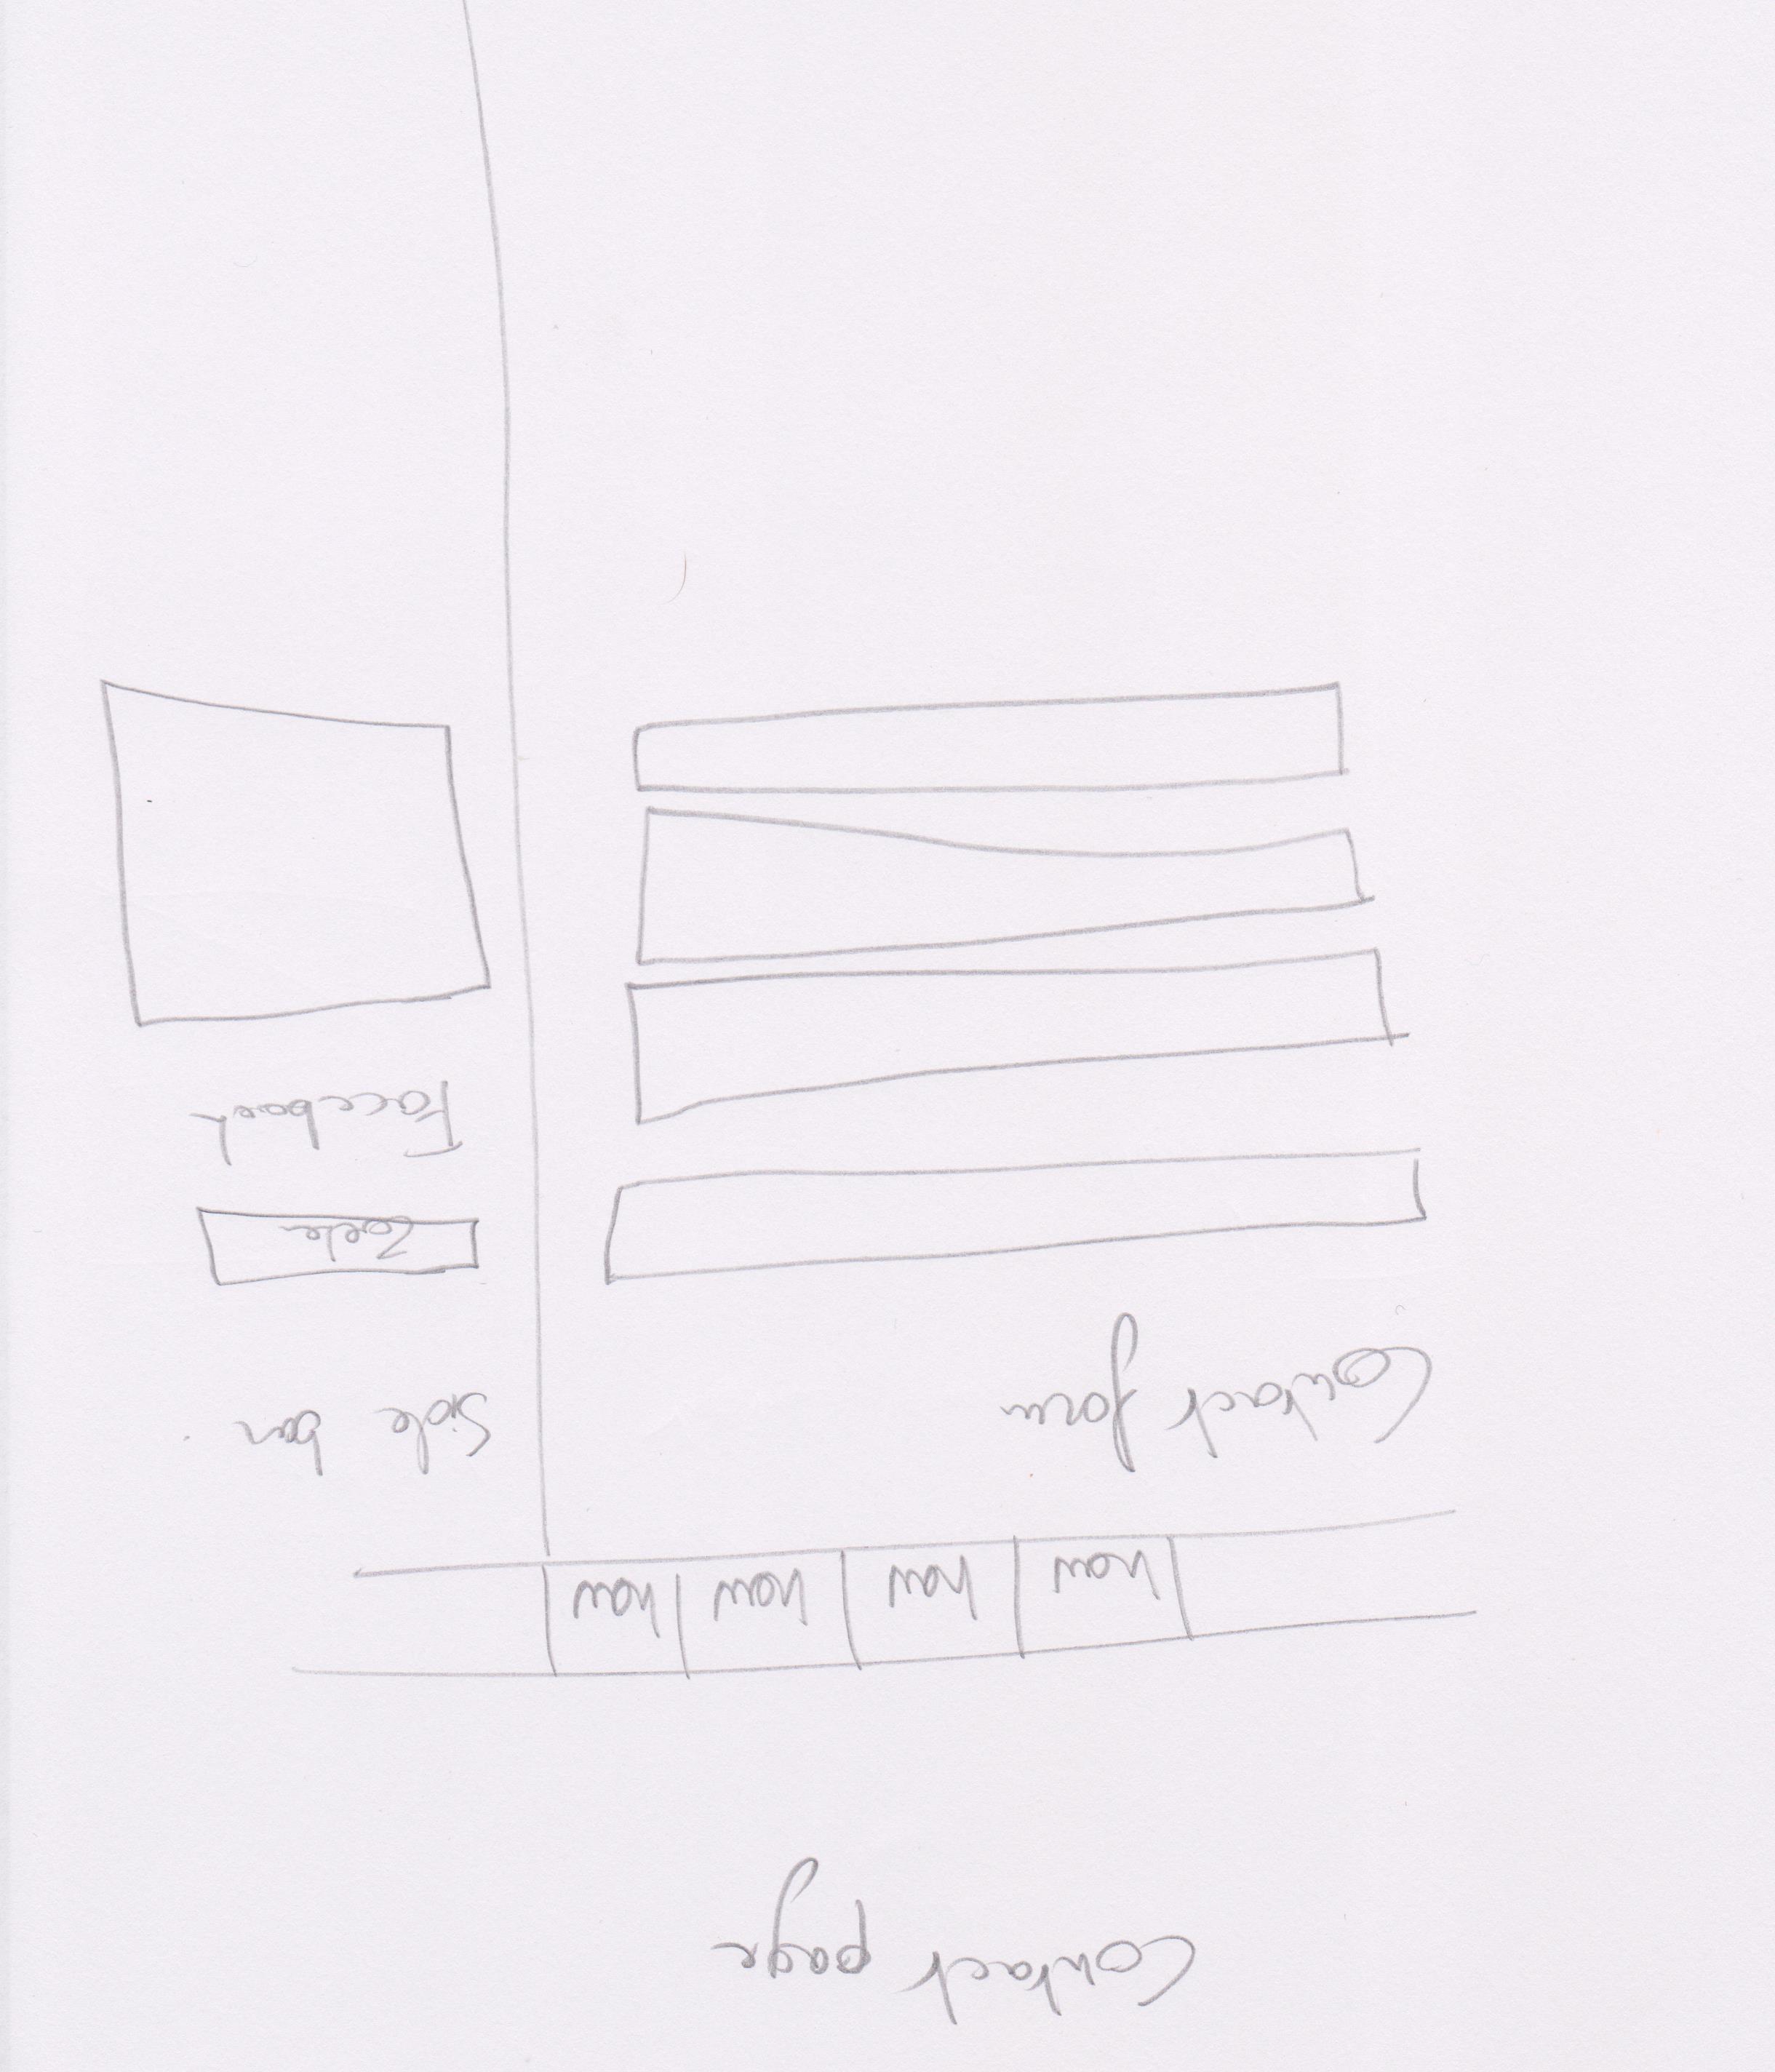 Contact page
nav nav nav nav
Contact form
Side bar
Zoeken
Facebook